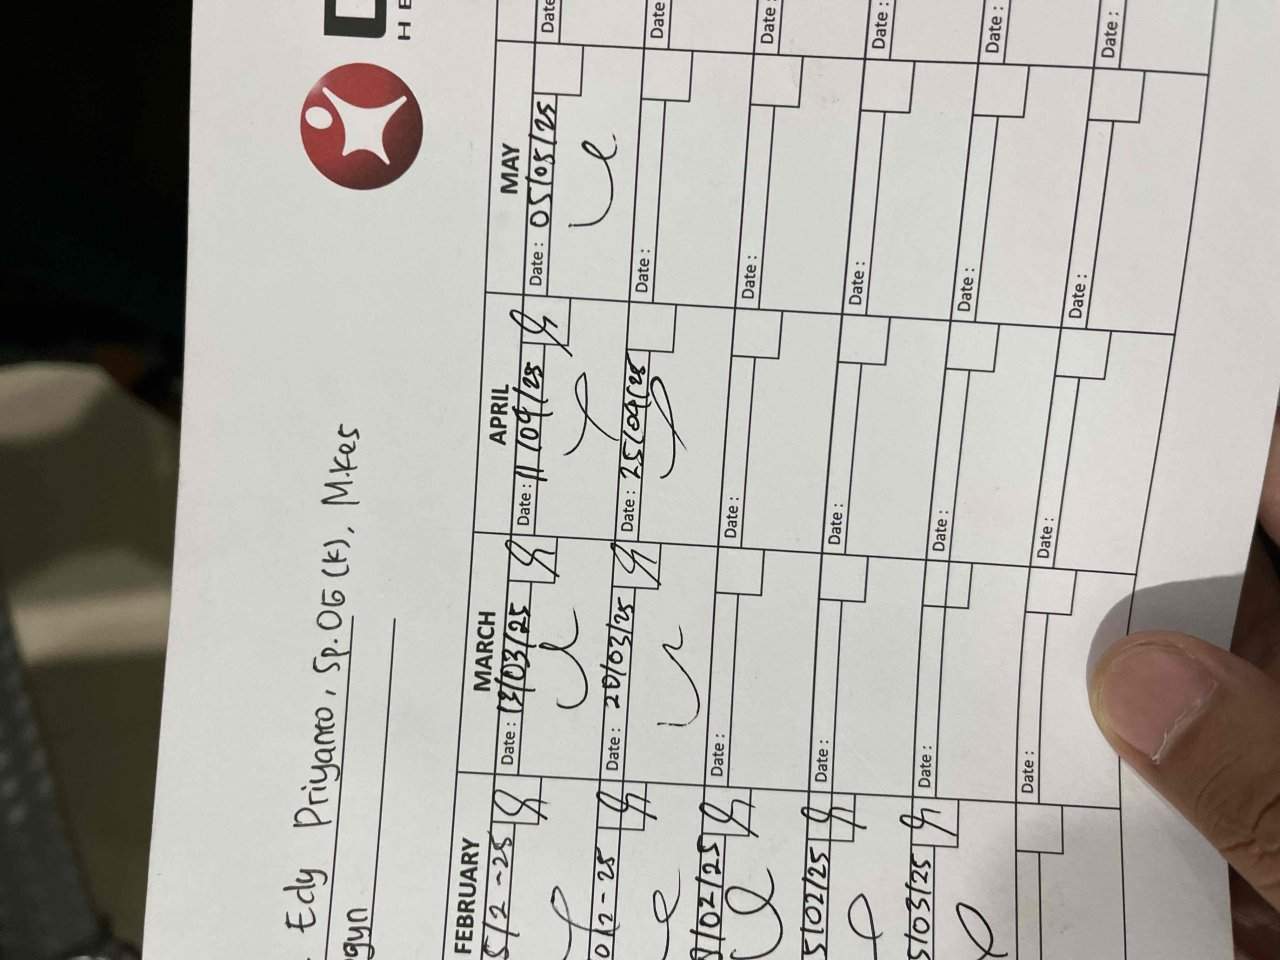 Edy Priyanto, Sp.OG (K), M.Kes
ogyn
FEBRUARY MARCH APRIL MAY
5/2-25 Date: 13/03/25 Date: 11/04/25 Date: 05/05/25 Date
0/2-25 Date: 20/03/25 Date: 25/04/25 Date: Date
/02/25 Date: Date: Date: Date:
5/02/25 Date: Date: Date: Date:
5/03/25 Date: Date: Date: Date:
Date: Date: Date: Date: